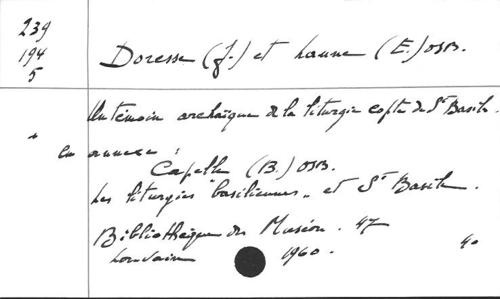 239
194
5
Doresse (J.) et Lanne (E.) OSB.
Un témoin archaïque de la liturgie copte de St Basile.
en annexe :
Capelle (B.) OSB.
Les liturgies "basiliennes" et St Basile.
Bibliothèque du Muséon. 47
Louvain 1960. 40